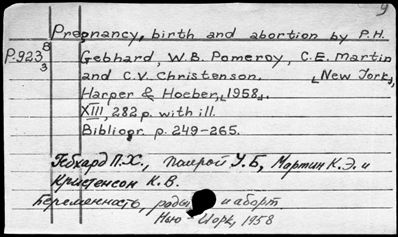 9
Pregnancy, birth and abortion by P.H.
P.923 8/3 Gebhard, W.B. Pomeroy, C.E. Martin
and C.V. Christenson. [New York],
Harper & Hoeber, [1958].
XIII, 282 p. with ill.
Bibliogr. p. 249-265.
Гебхард П.Х., Памрой У.Б., Мартин К.Э. и
Кристенсон К.В.
Беременность, роды и аборт
Нью-Йорк, 1958